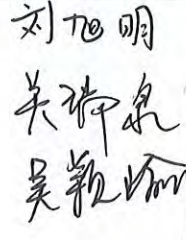 刘旭明
吴瑞泉
吴颖瑜